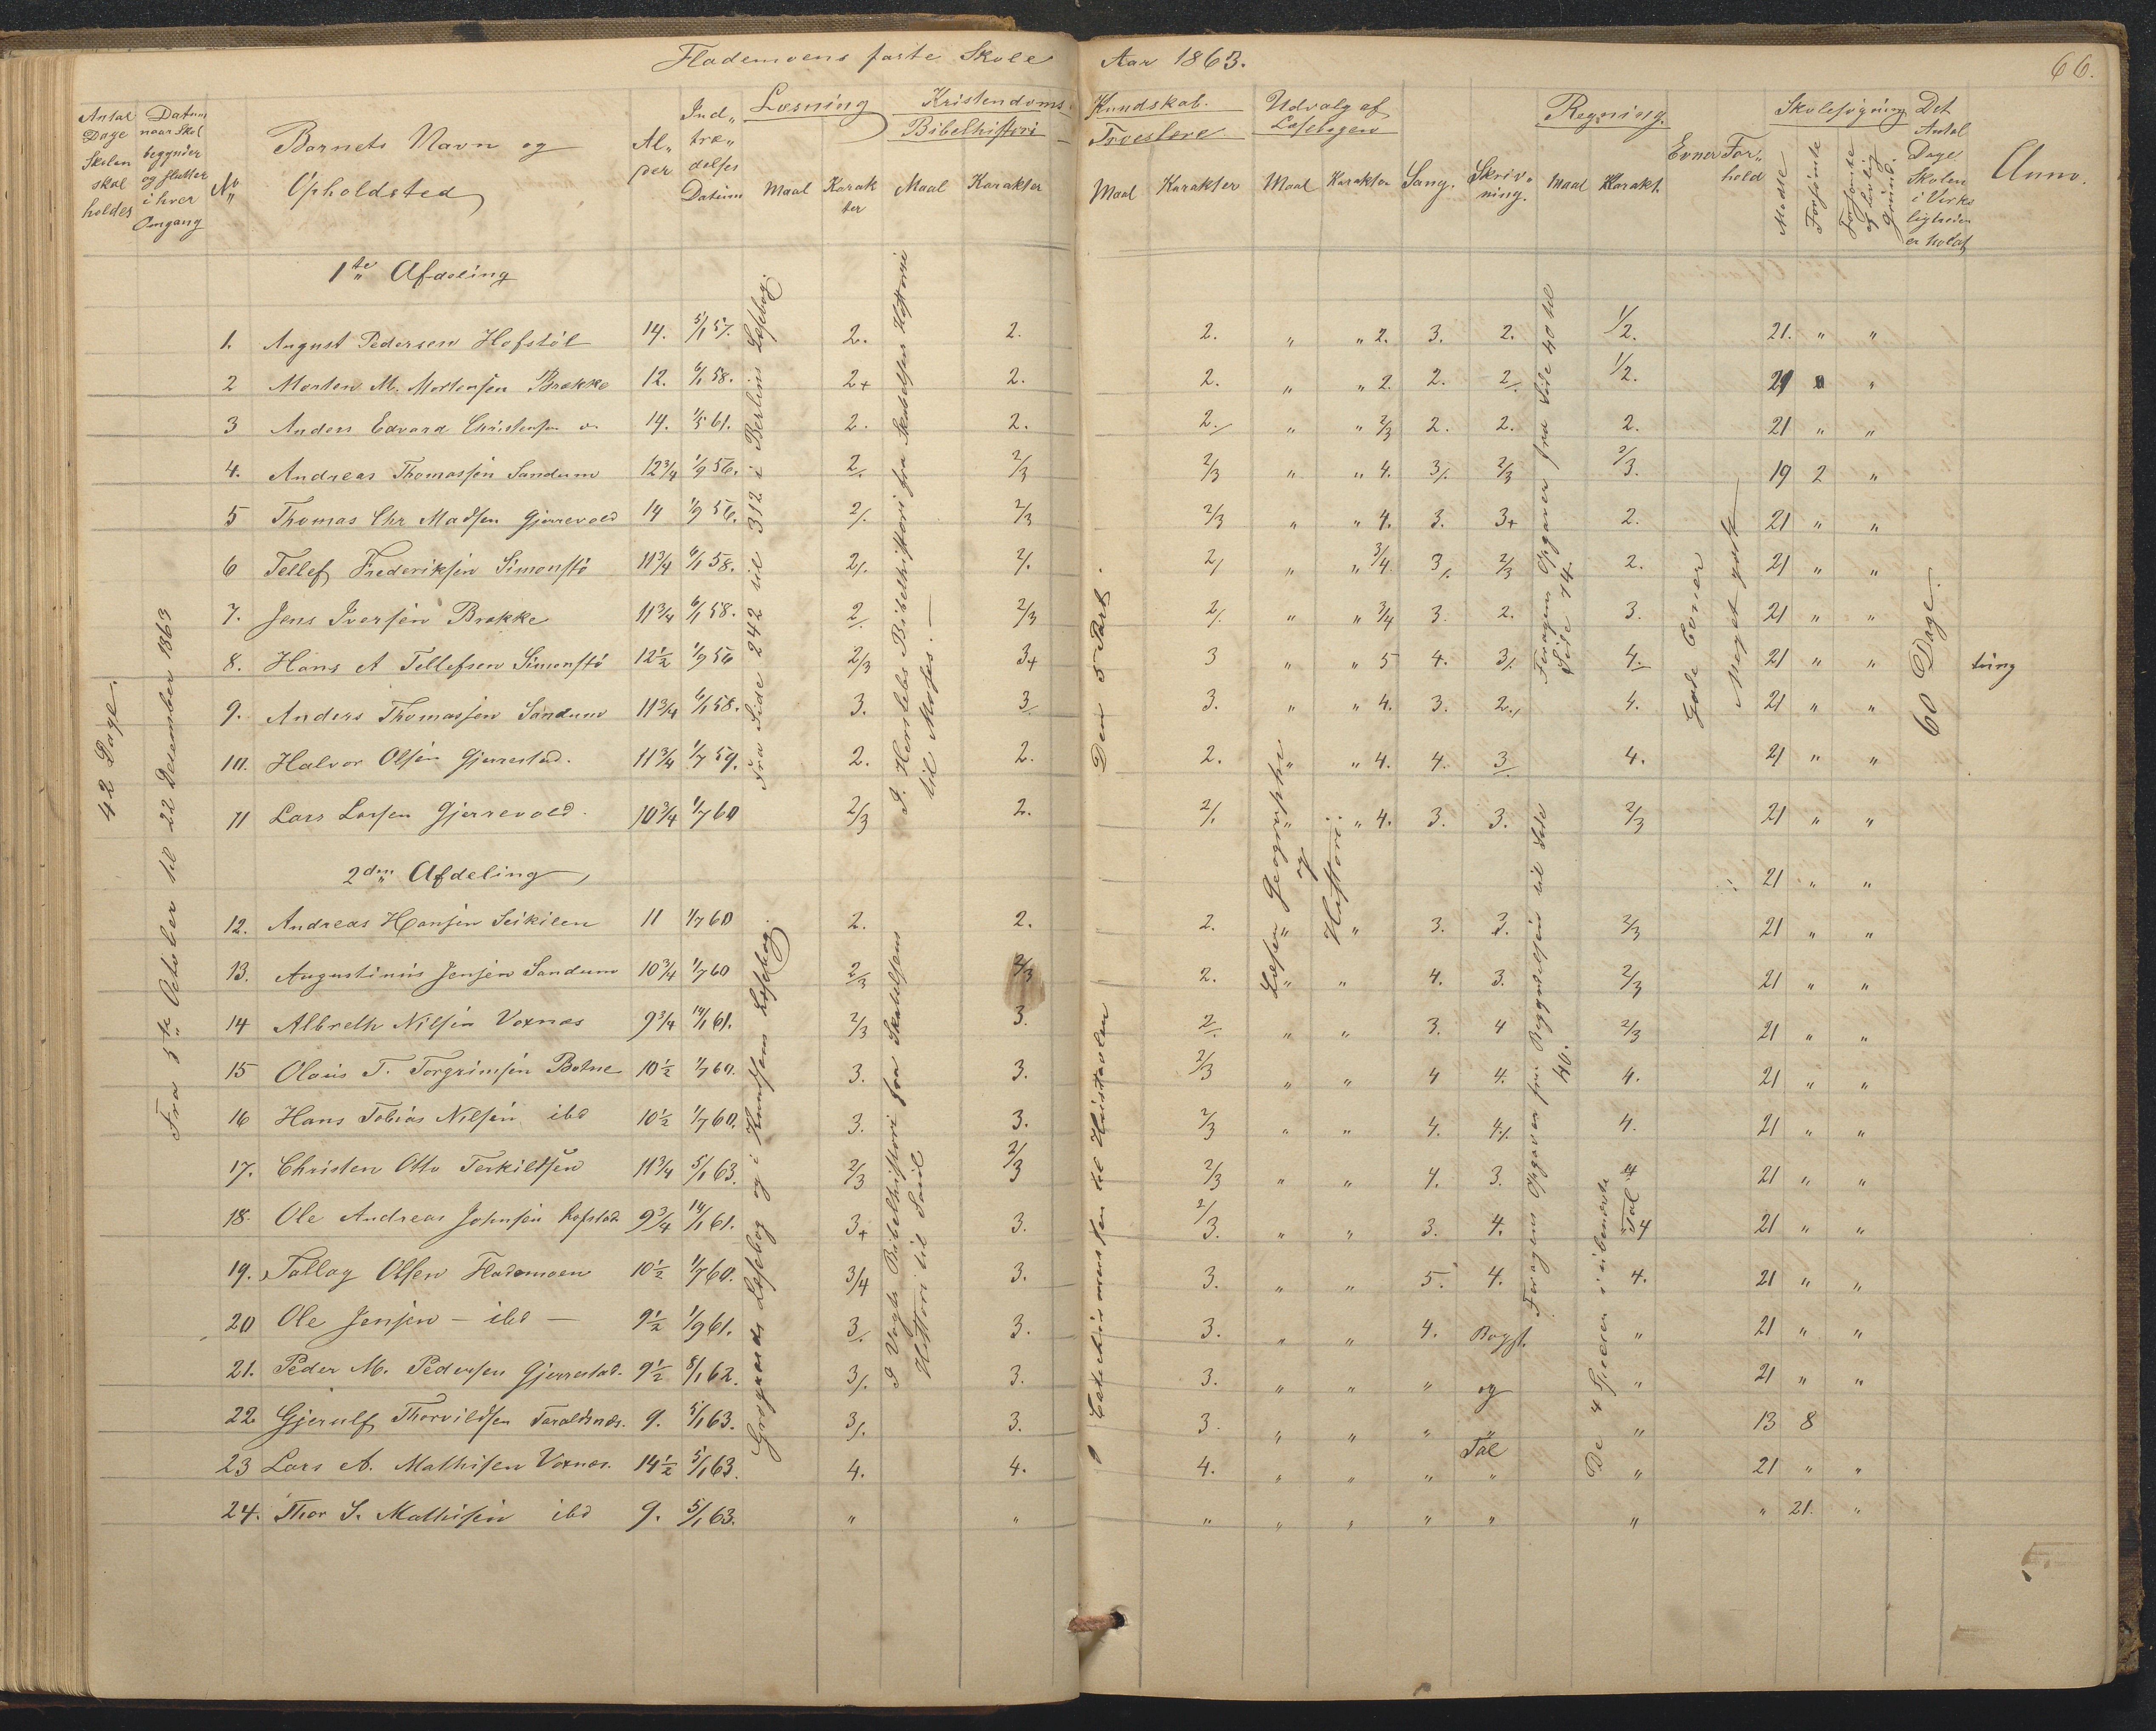 Flademoens faste Skole Aar 1863. 66.
Antal Dage Skolen skal holdes
Datum naar Skol begynder og slutter i hver Omgang
No
Barnets Navn og Opholdsted
Alder
Indtrædelses Datum
Læsning Maal Karakter
Kristendoms Kundskab.
Bibelhistori Maal Karakter
Troeslære Maal Karakter
Udvalg af Læsebogen Maal Karakter
Sang.
Skrivning.
Regning. Maal Karakt.
Evner
Forhold
Skolesøgning Mødte Forsømte Forsømte af lovlig Grund.
Det Antal Dage Skolen i Virkligheden er holdt
Anm.
42 Dage.
Fra 5te October til 22 December 1863
1te Afdeling
1. August Pedersen Hofstøl 14. 5/1 57. 2. 2. 2. " " 2. 3. 2. 1/2. 21. " "
2 Morten M. Mortensen Brække 12. 6/1 58. 2+ 2. 2. " " 2. 2. 2/. 1/2. 21 " "
3 Anders Edvard Christensen 14. 1/5 61. 2. 2. 2./ " " 2/3 2. 2. 2. 21 " "
4. Andreas Thomassen Sandum 12 3/4 1/9 56. 2/. 2/3 2/3 " " 4. 3/. 2/3 2/3. 19 2 "
5 Thomas Chr Madsen Gjerrevold 14 1/9 56. 2/. 2/3 2/3 " " 4. 3. 3+ 2. 21 " "
6 Tellef Frederiksen Simonstø 11 3/4 6/1 58. 2/. 2/. 2/ " " 3/4 3/. 2/3 2. 21 " "
7. Jens Iversen Brække 11 3/4 6/1 58. 2/. 2/3 2/. " " 3/4 3. 2. 3. 21 " "
8. Hans A Tellefsen Simonstø 12 1/2 1/9 56 2/3 3+ 3 " " 5 4. 3/. 4. 21 " "
9. Anders Thomassen Sandum 11 3/4 6/1 58. 3. 3/ 3. " " 4. 3. 2./ 4. 21 " "
10. Halvor Olsen Gjerrestad. 11 3/4 1/7 59. 2. 2. 2. " " 4. 4. 3 4. 21 " "
11 Lars Larsen Gjerrevold. 10 3/4 1/7 60 2/3 2. 2/. " " 4. 3. 3. 2/3 21 " "
Fra Side 242 til 312 i Berlins Læsebog.
I Herslebs Bibelhistori fra Skabelsen Historie til Moses. —
Den 5 Part.
Læsen Geographie og Historie.
Forøgens Opgaver fra Side 40 til Side 74.
Gode Evner
Meget godt
60 Dage.
2den Afdeling 21 " "
12. Andreas Hansen Seikilen 11 1/7 60 2. 2. 2. " " 3. 3. 2/3 21 " "
13. Augustinus Jensen Sandum 10 3/4 1/7 60 2/3 2/3 2. " " 4. 3. 2/3 21 " "
14 Albreth Nilsen Voxnæs 9 3/4 14/1 61. 2/3 3. 2/. " " 3. 4 2/3 21 " "
15 Olaus T. Torgrimsen Botne 10 1/2 1/7 60. 3. 3. 2/3 " " 4 4. 4. 21 " "
16 Hans Tobias Nilsen ibd 10 1/2 1/7 60. 3. 3. 2/3 " " 4. 4/. 4. 21 " "
17. Christen Otto Terkildsen 11 3/4 5/1 63. 2/3 2/3 2/3 " " 4. 3. 4 21 " "
18. Ole Andreas Johnsen Hofstad 9 3/4 14/1 61. 3+ 3. 2/3. " " 3. 4. 4 21 " "
19. Tallag Olsen Flademoen 10 1/2 1/7 60. 3/4 3. 3. " " 5. 4. 4. 21 " "
20 Ole Jensen — ibd — 9 1/2 1/9 61. 3/. 3. 3. " " 4. Bogst. " 21 " "
21. Peder M. Pedersen Gjerrestad. 9 1/2 8/1 62. 3/. 3. 3. " " " og " 21 " "
22 Gjerulf Thorvildsen Taraldsnæs. 9. 5/1 63. 3/. 3. 3. " " " " " 13 8
Tal
23 Lars A. Mathisen Voxnæs. 14 1/2 5/1 63. 4. 4. 4. " " " " " 21 " "
24. Thor S. Mathisen ibd 9. 5/1 63. " " " " " " " " " 21. "
Læsebog og i Knudsens Læsebog.
I Vogts Bibelhistori fra Skabelsens Histori til Saul
Catechismus til Hustavlen
Forøgens Opgaver fra Begyndelsen til Side 40.
De 4 Specier i ubenævnte Tal